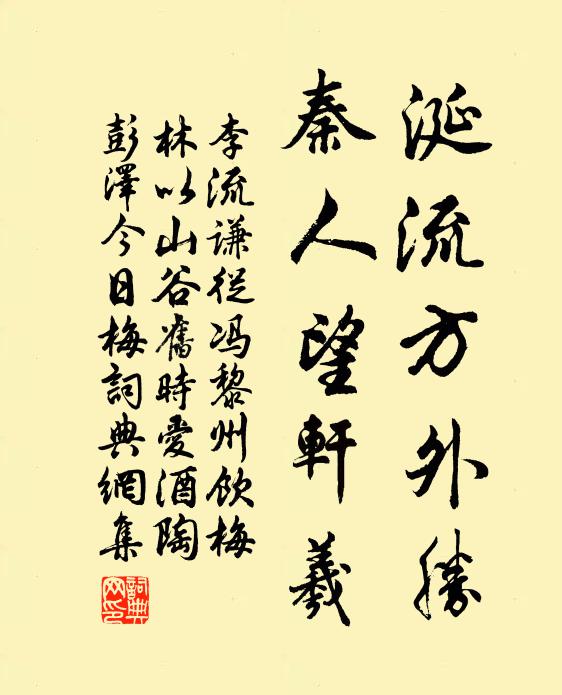 涎流方外勝
秦人望軒羲
李流謙從馮黎州飲梅
林以山谷舊時愛酒陶
彭澤今日梅詞典網集
詞典網印